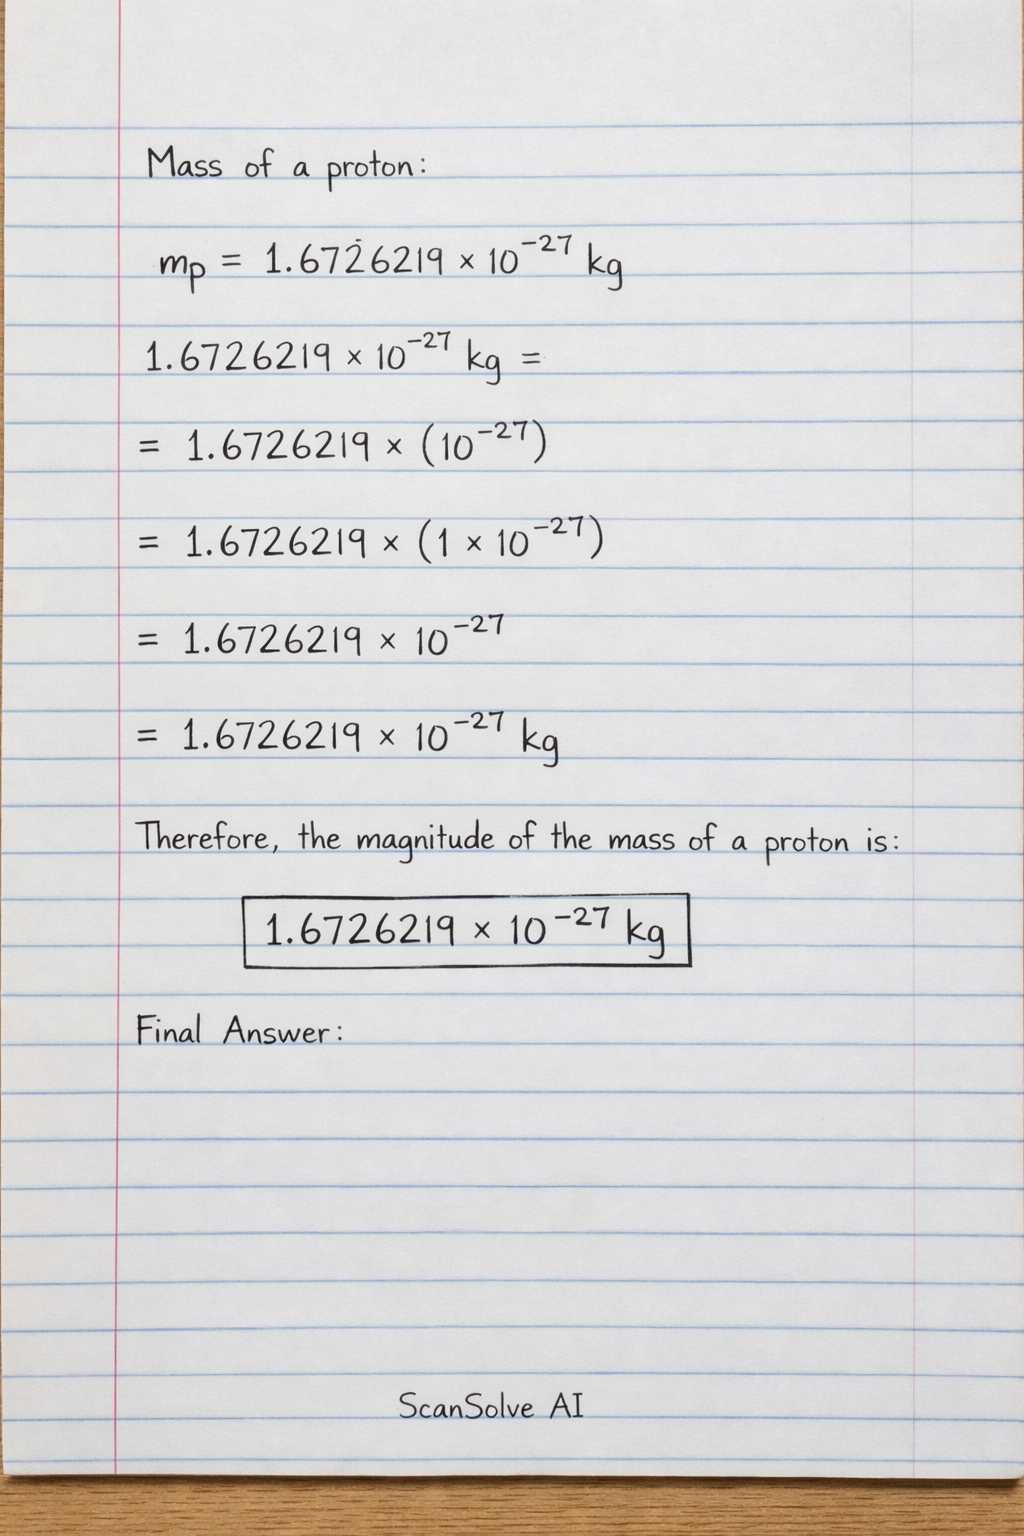 Mass of a proton:
mp = 1.6726219 × 10⁻²⁷ kg
1.6726219 × 10⁻²⁷ kg =
= 1.6726219 × (10⁻²⁷)
= 1.6726219 × (1 × 10⁻²⁷)
= 1.6726219 × 10⁻²⁷
= 1.6726219 × 10⁻²⁷ kg
Therefore, the magnitude of the mass of a proton is:
1.6726219 × 10⁻²⁷ kg
Final Answer:
ScanSolve AI